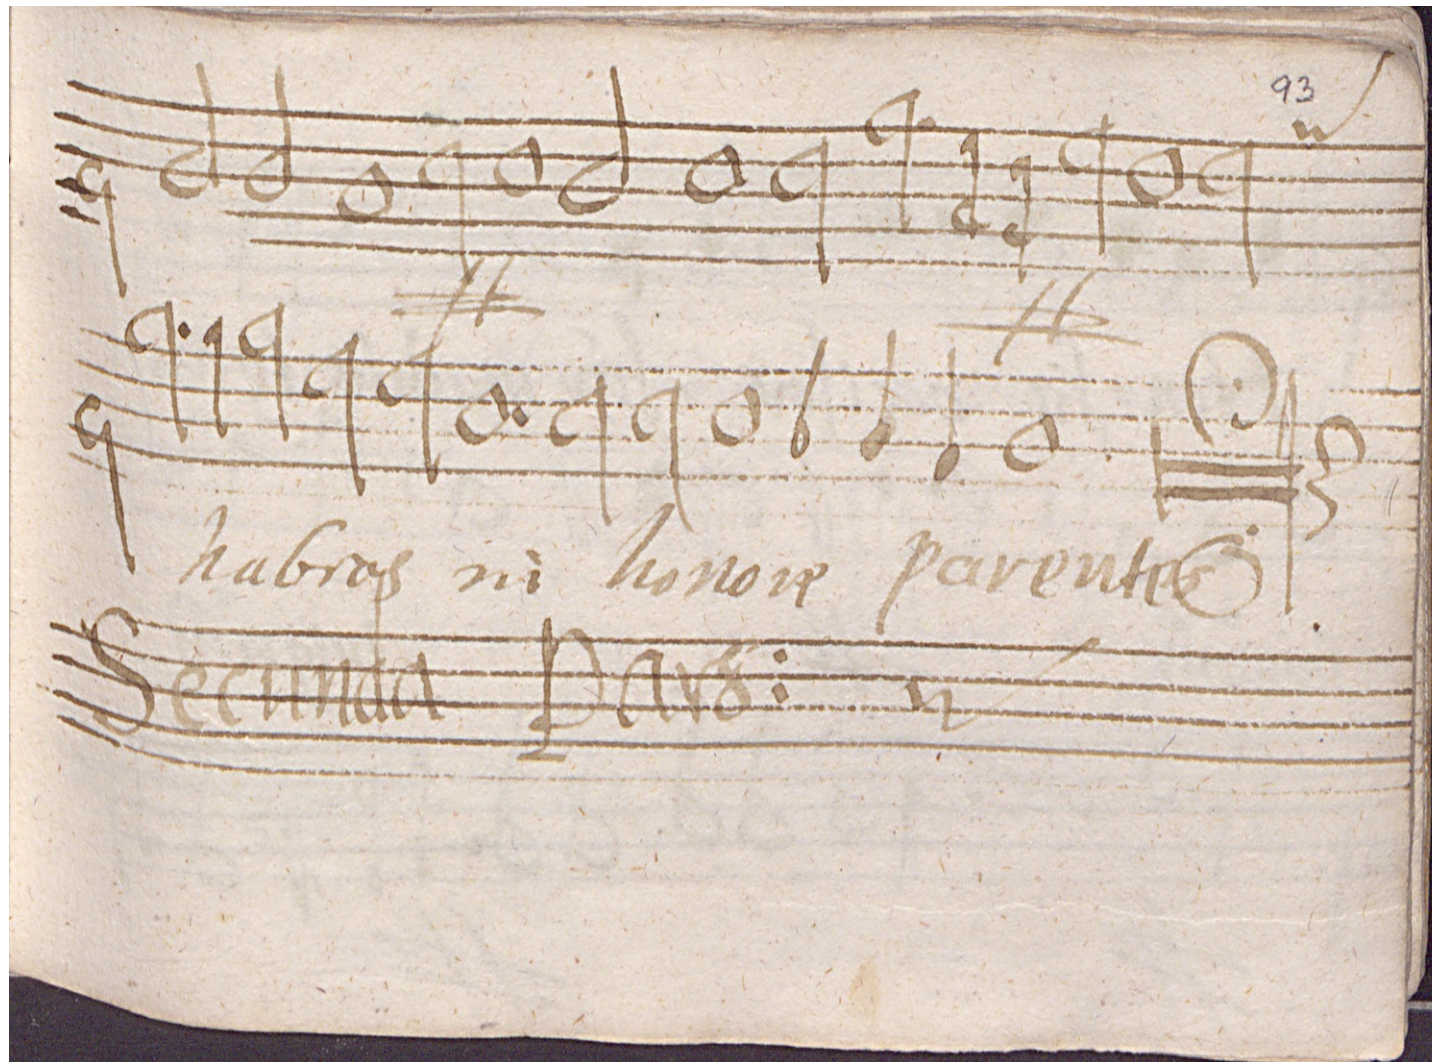 93
habras in honore parentes
Secunda Pars: